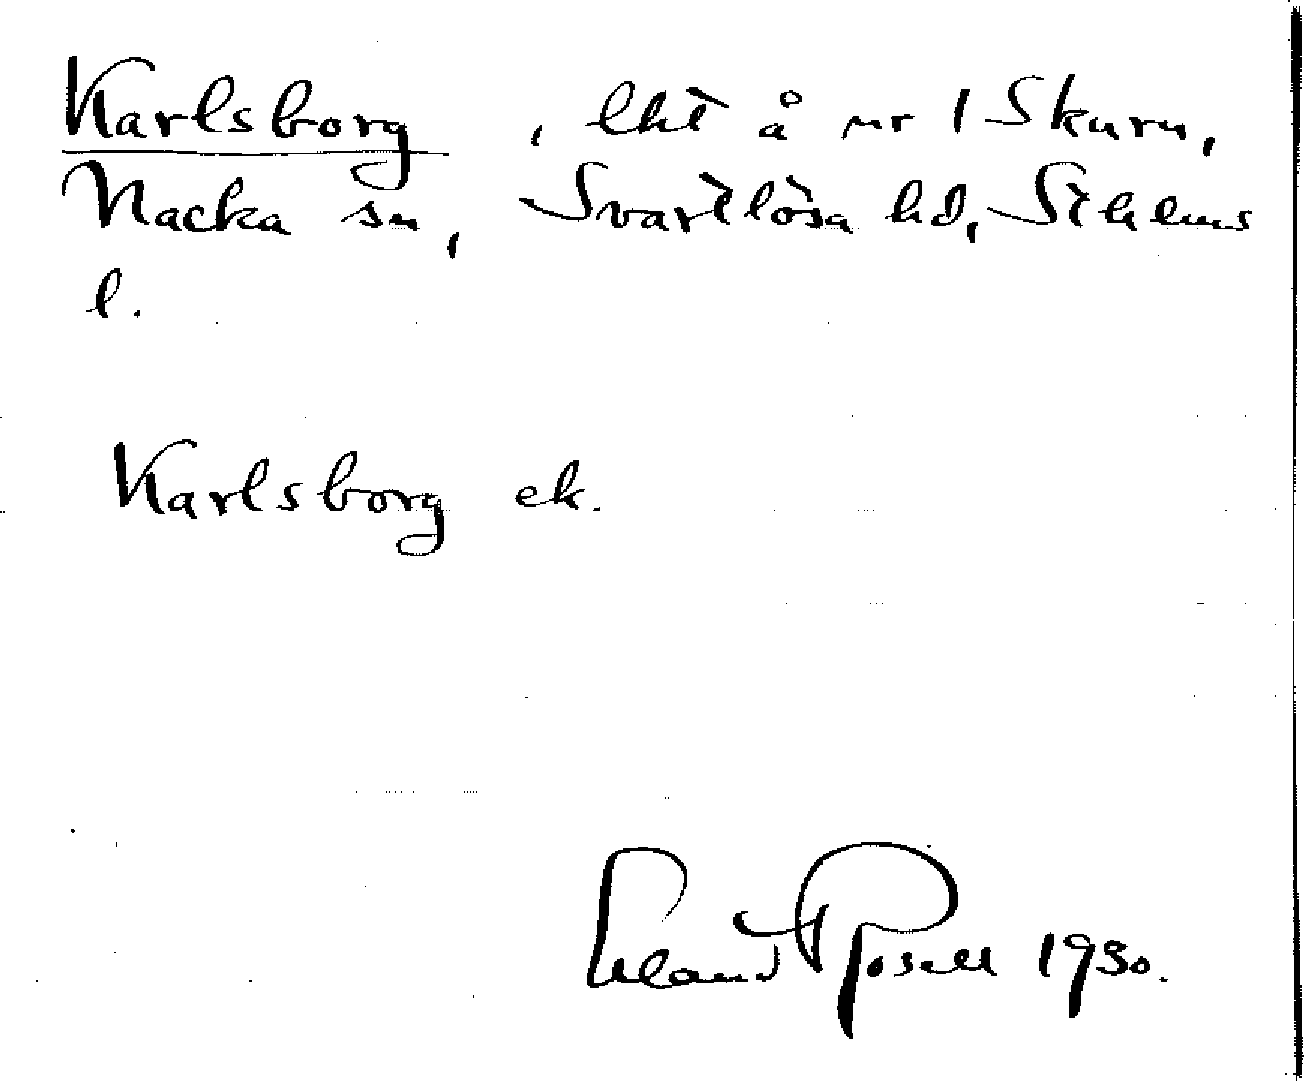 Karlsborg, lht å nr 1 Skuru,
Nacka sn, Svartlösa hd, Sthlms
l.
Karlsborg ek.
Erland Rosell 1930.